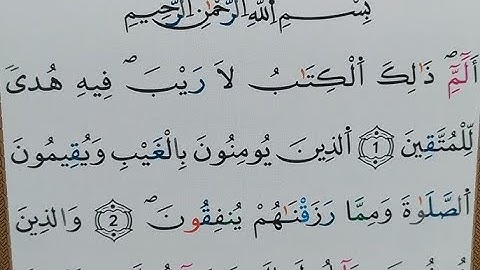 بِسْمِ اللَّهِ الرَّحْمَٰنِ الرَّحِيمِ
أَلَٓمِّٓۖ ذَٰلِكَ اَ۬لْكِتَٰبُ لَا رَيْبَۖ فِيهِ هُدىٗ
لِّلْمُتَّقِينَ 1 اَ۬لذِينَ يُومِنُونَ بِالْغَيْبِ وَيُقِيمُونَ
اَ۬لصَّلَوٰةَ وَمِمَّا رَزَقْنَٰهُمْ يُنفِقُونَۖ 2 وَالذِينَ